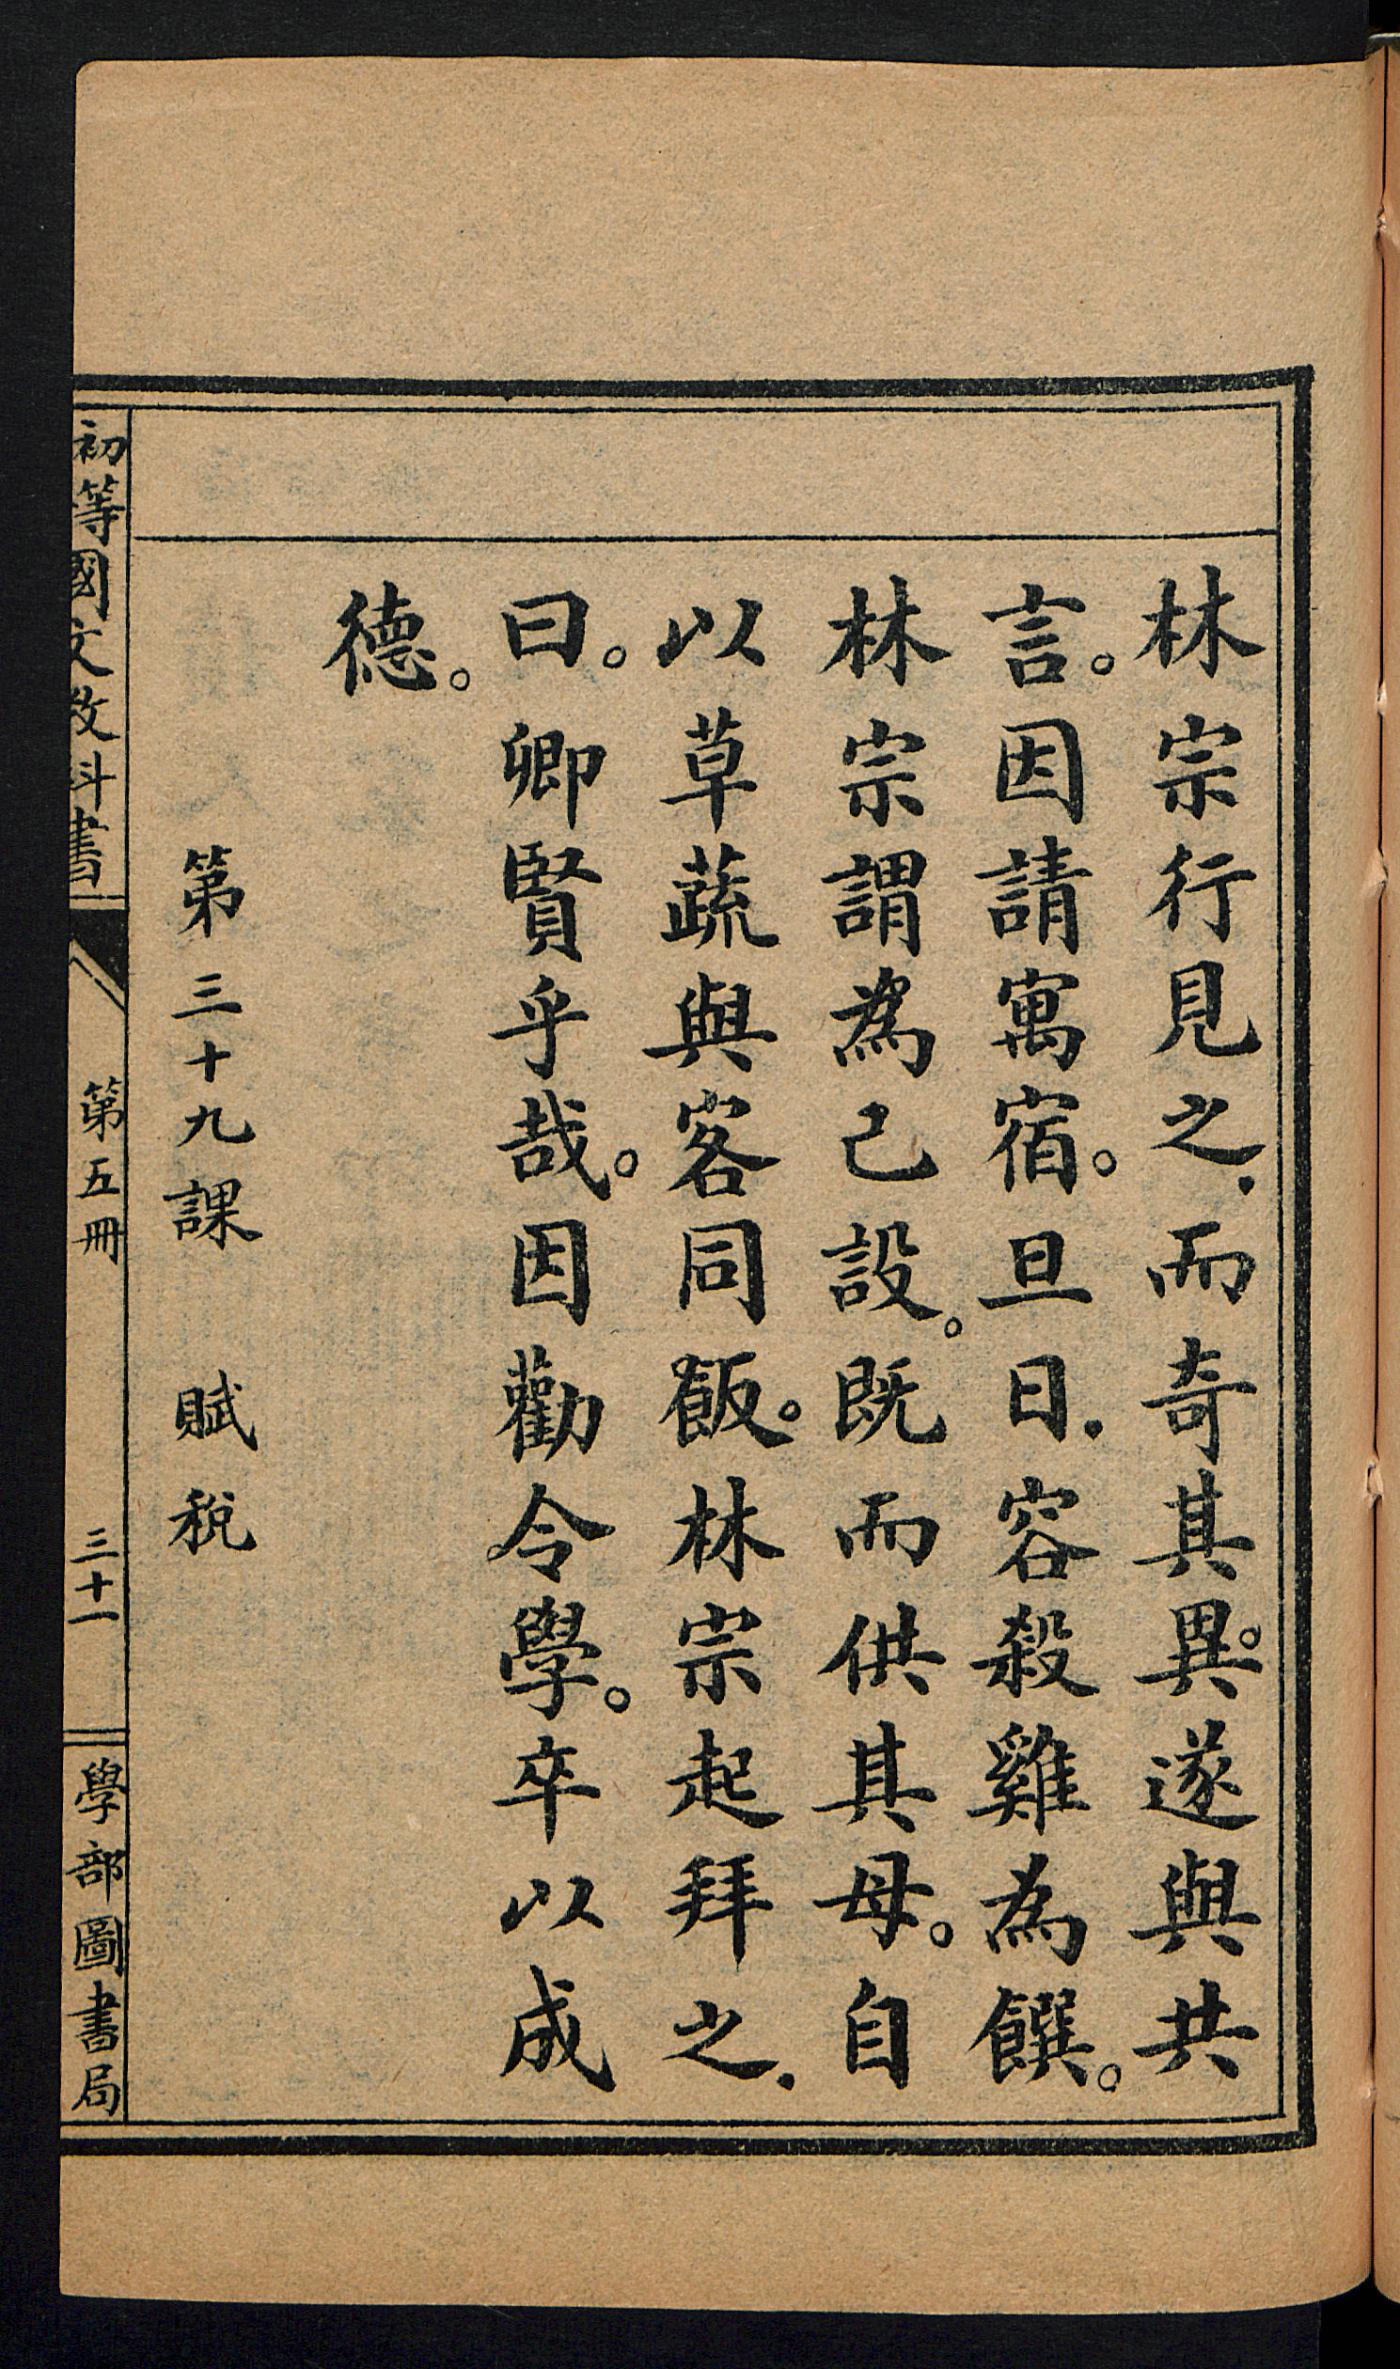 林宗行見之.而奇其異。遂與共
言。因請寓宿。旦日.容殺雞為饌。
林宗謂為己設。既而供其母。自
以草蔬與客同飯。林宗起拜之.
曰。卿賢乎哉。因勸令學。卒以成
德。
第三十九課　賦税
初等國文教科書　第五冊　三十一　學部圖書局